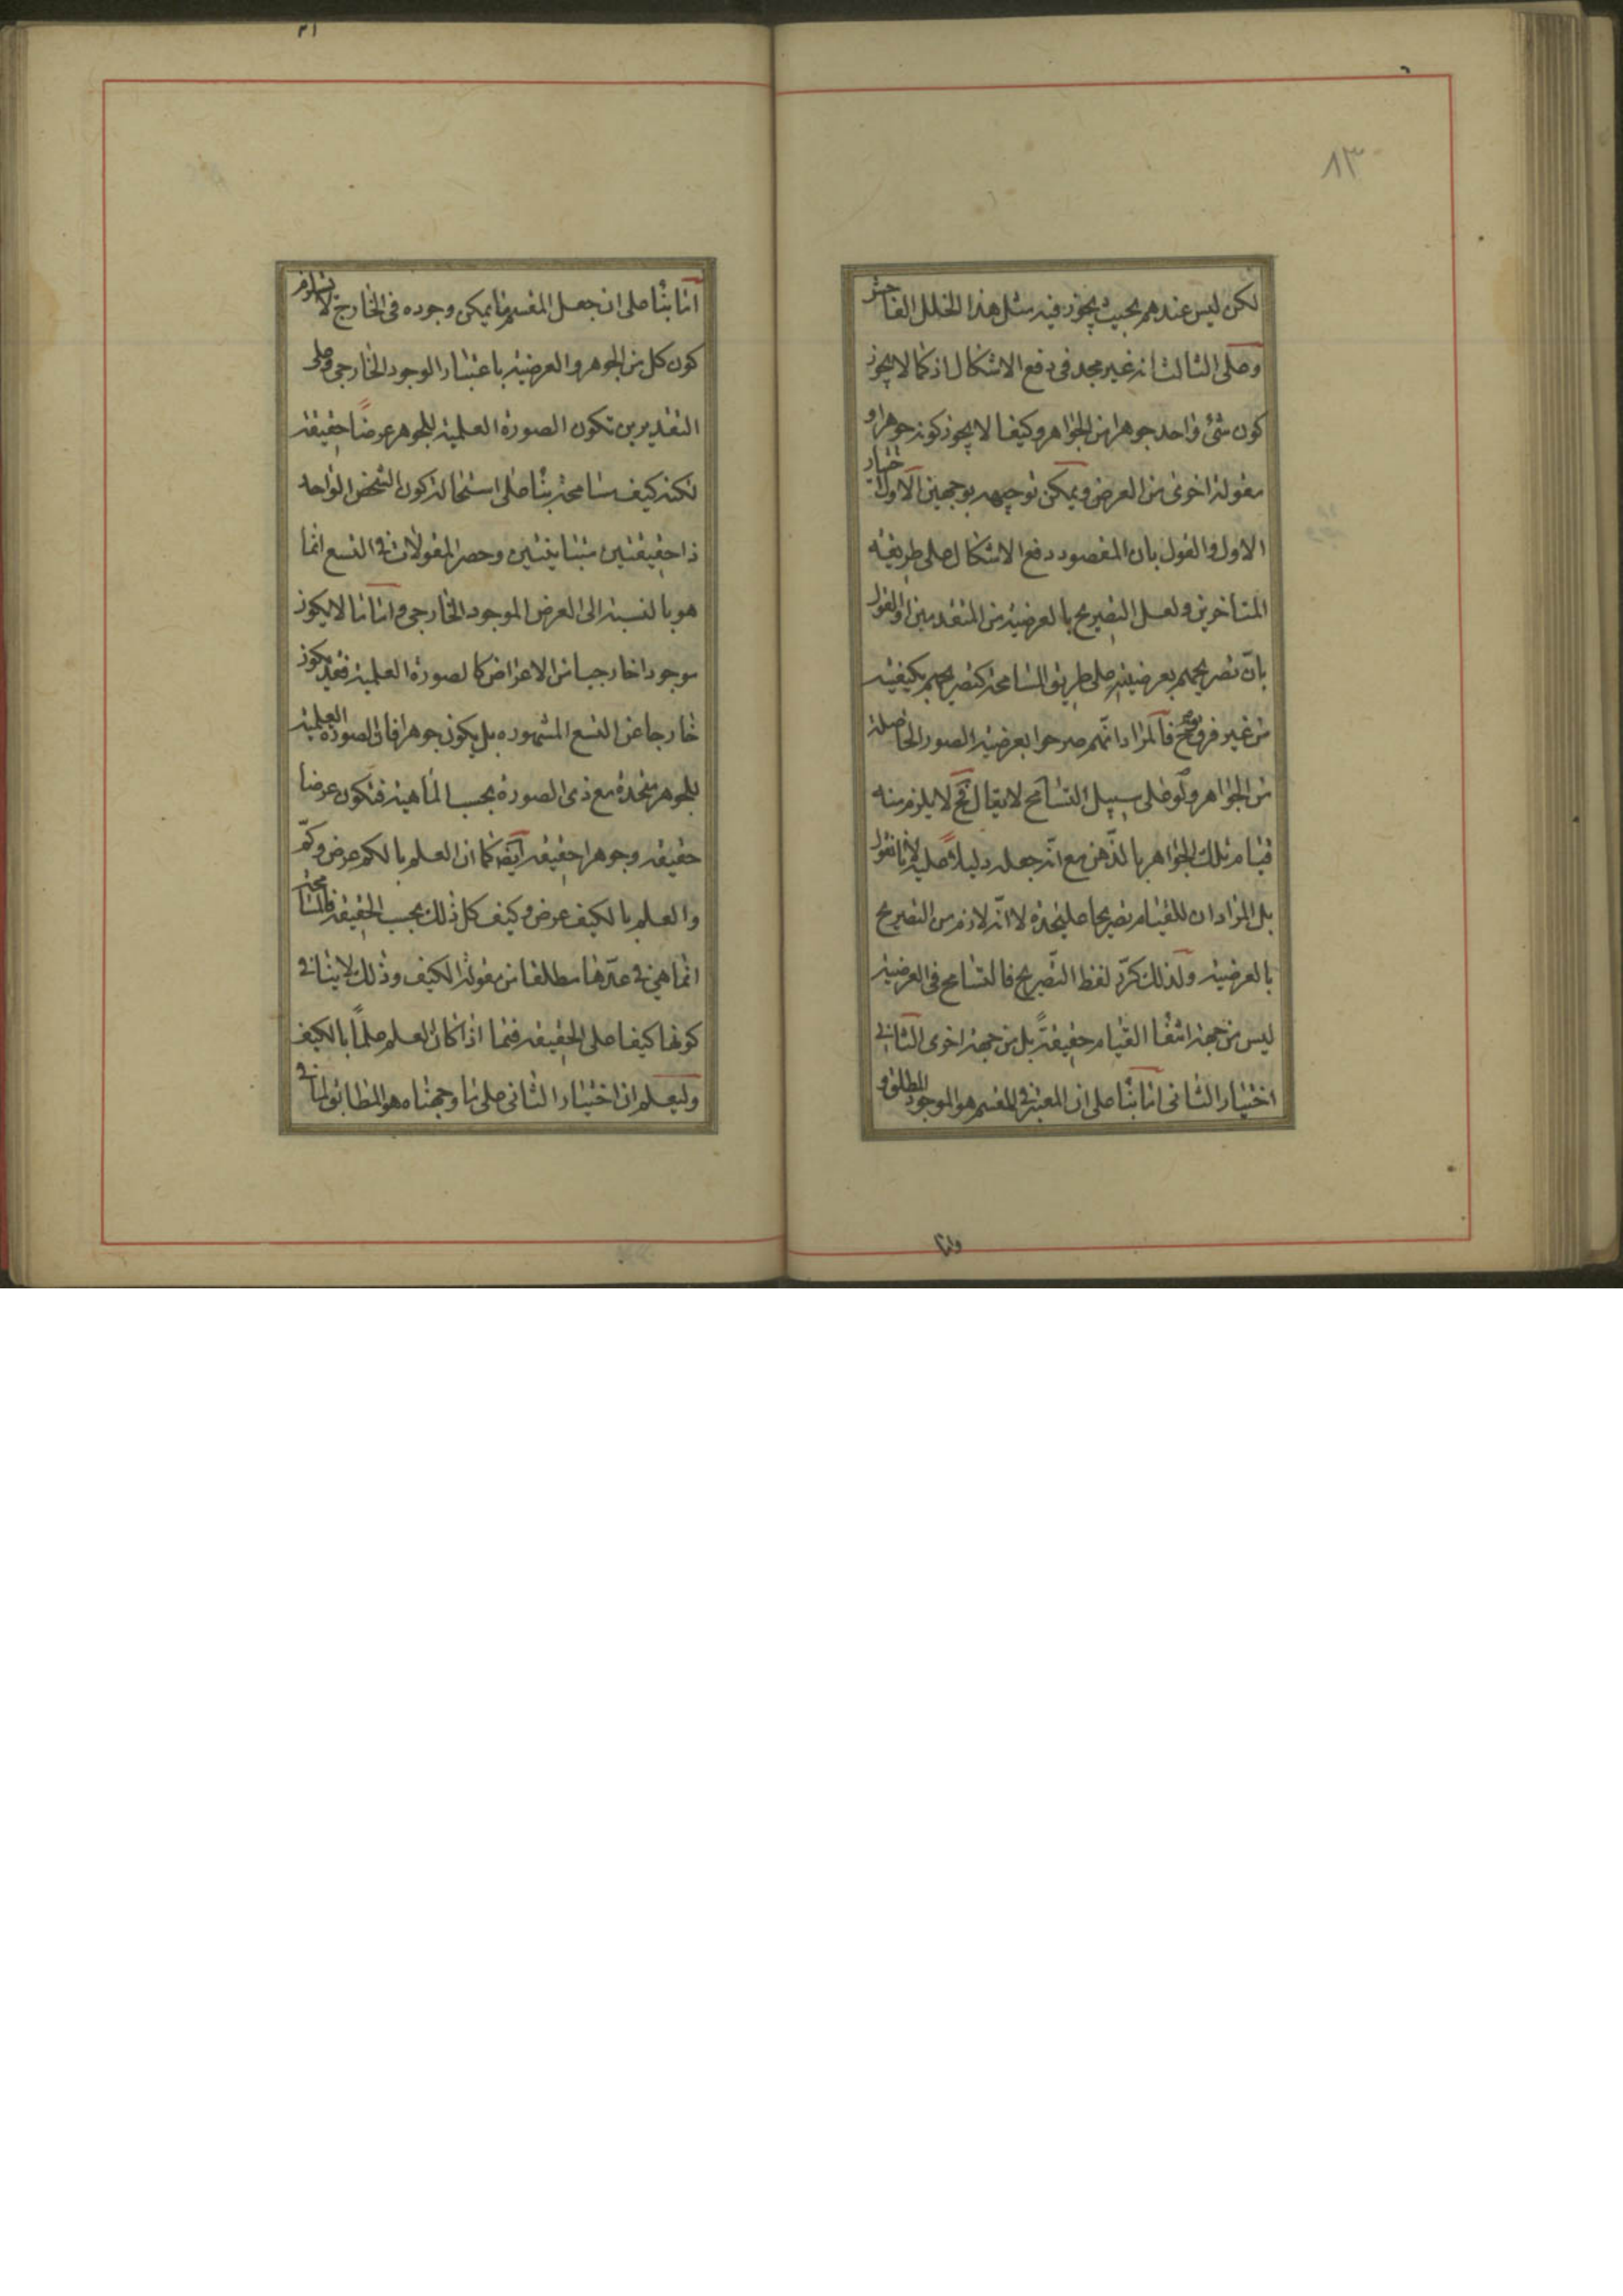 ٨٣
لكن ليس عندهم بحيث يجوز فيه مثل هذا الخلل الفاحش
وعلى الثالث انه غير مجد فى دفع الاشكال اذ كما لا يجوز
كون شئ واحد جوهرا من الجواهر وكيفا لا يجوز كونه جوهرا و
مقولة اخرى من العرض ويمكن توجيهه بوجهين الاول اختيار
الاول والقول بان المقصود دفع الاشكال على طريقة
المتاخرين ولعل التصريح بالعرضية من المتقدمين او القول
بان تصريحهم بعرضيته على طريق المسامحة كتصريحهم بكيفيته
من غير فرق فالمراد انهم صرحوا بعرضية الصور الحاصلة
من الجواهر ولو على سبيل التسامح لا يقال فح لا يلزم منه
قيام تلك الجواهر بالذهن مع انه جعله دليلا عليه لانا نقول
بل المراد ان للقيام تصريحا عليحدة لا انه لازم من التصريح
بالعرضية ولذلك كرر لفظ التصريح فالتسامح فى العرضية
ليس من جهة انتفا القيام حقيقة بل من جهة اخرى الثانى
اختيار الثانى اما بنا على ان المعتبر فى المقسم هو الموجود المطلق و
واما
اما بنا على ان جعل المقسم ما يمكن وجوده فى الخارج لا يستلزم
كون كل من الجوهر والعرضية باعتبار الوجود الخارجى وعلى
التقديرين تكون الصورة العلمية للجوهر عرضا حقيقة
لكنه كيف مسامحة بنا على استحالة كون الشخص الواحد
ذا حقيقتين متباينتين وحصر المقولات فى التسع انما
هو بالنسبة الى العرض الموجود الخارجى واما ما لا يكون
موجودا خارجيا من الاعراض كالصورة العلمية فقد يكون
خارجا عن التسع المشهوره بل يكون جوهرا فان الصورة العلمية
للجوهر متحدة مع ذى الصورة بحسب الماهية فتكون عرضا
حقيقة وجوهرا حقيقة ايضا كما ان العلم بالكم عرض وكم
والعلم بالكيف عرض وكيف كل ذلك بحسب الحقيقة فالمسامحة
انما هى فى عدها مطلقا من مقولة الكيف وذلك لا ينافى
كونها كيفا على الحقيقة فيما اذا كان العلم علما بالكيف
وليعلم ان اختيار الثانى على ما وجهناه هو المطابق لما فى